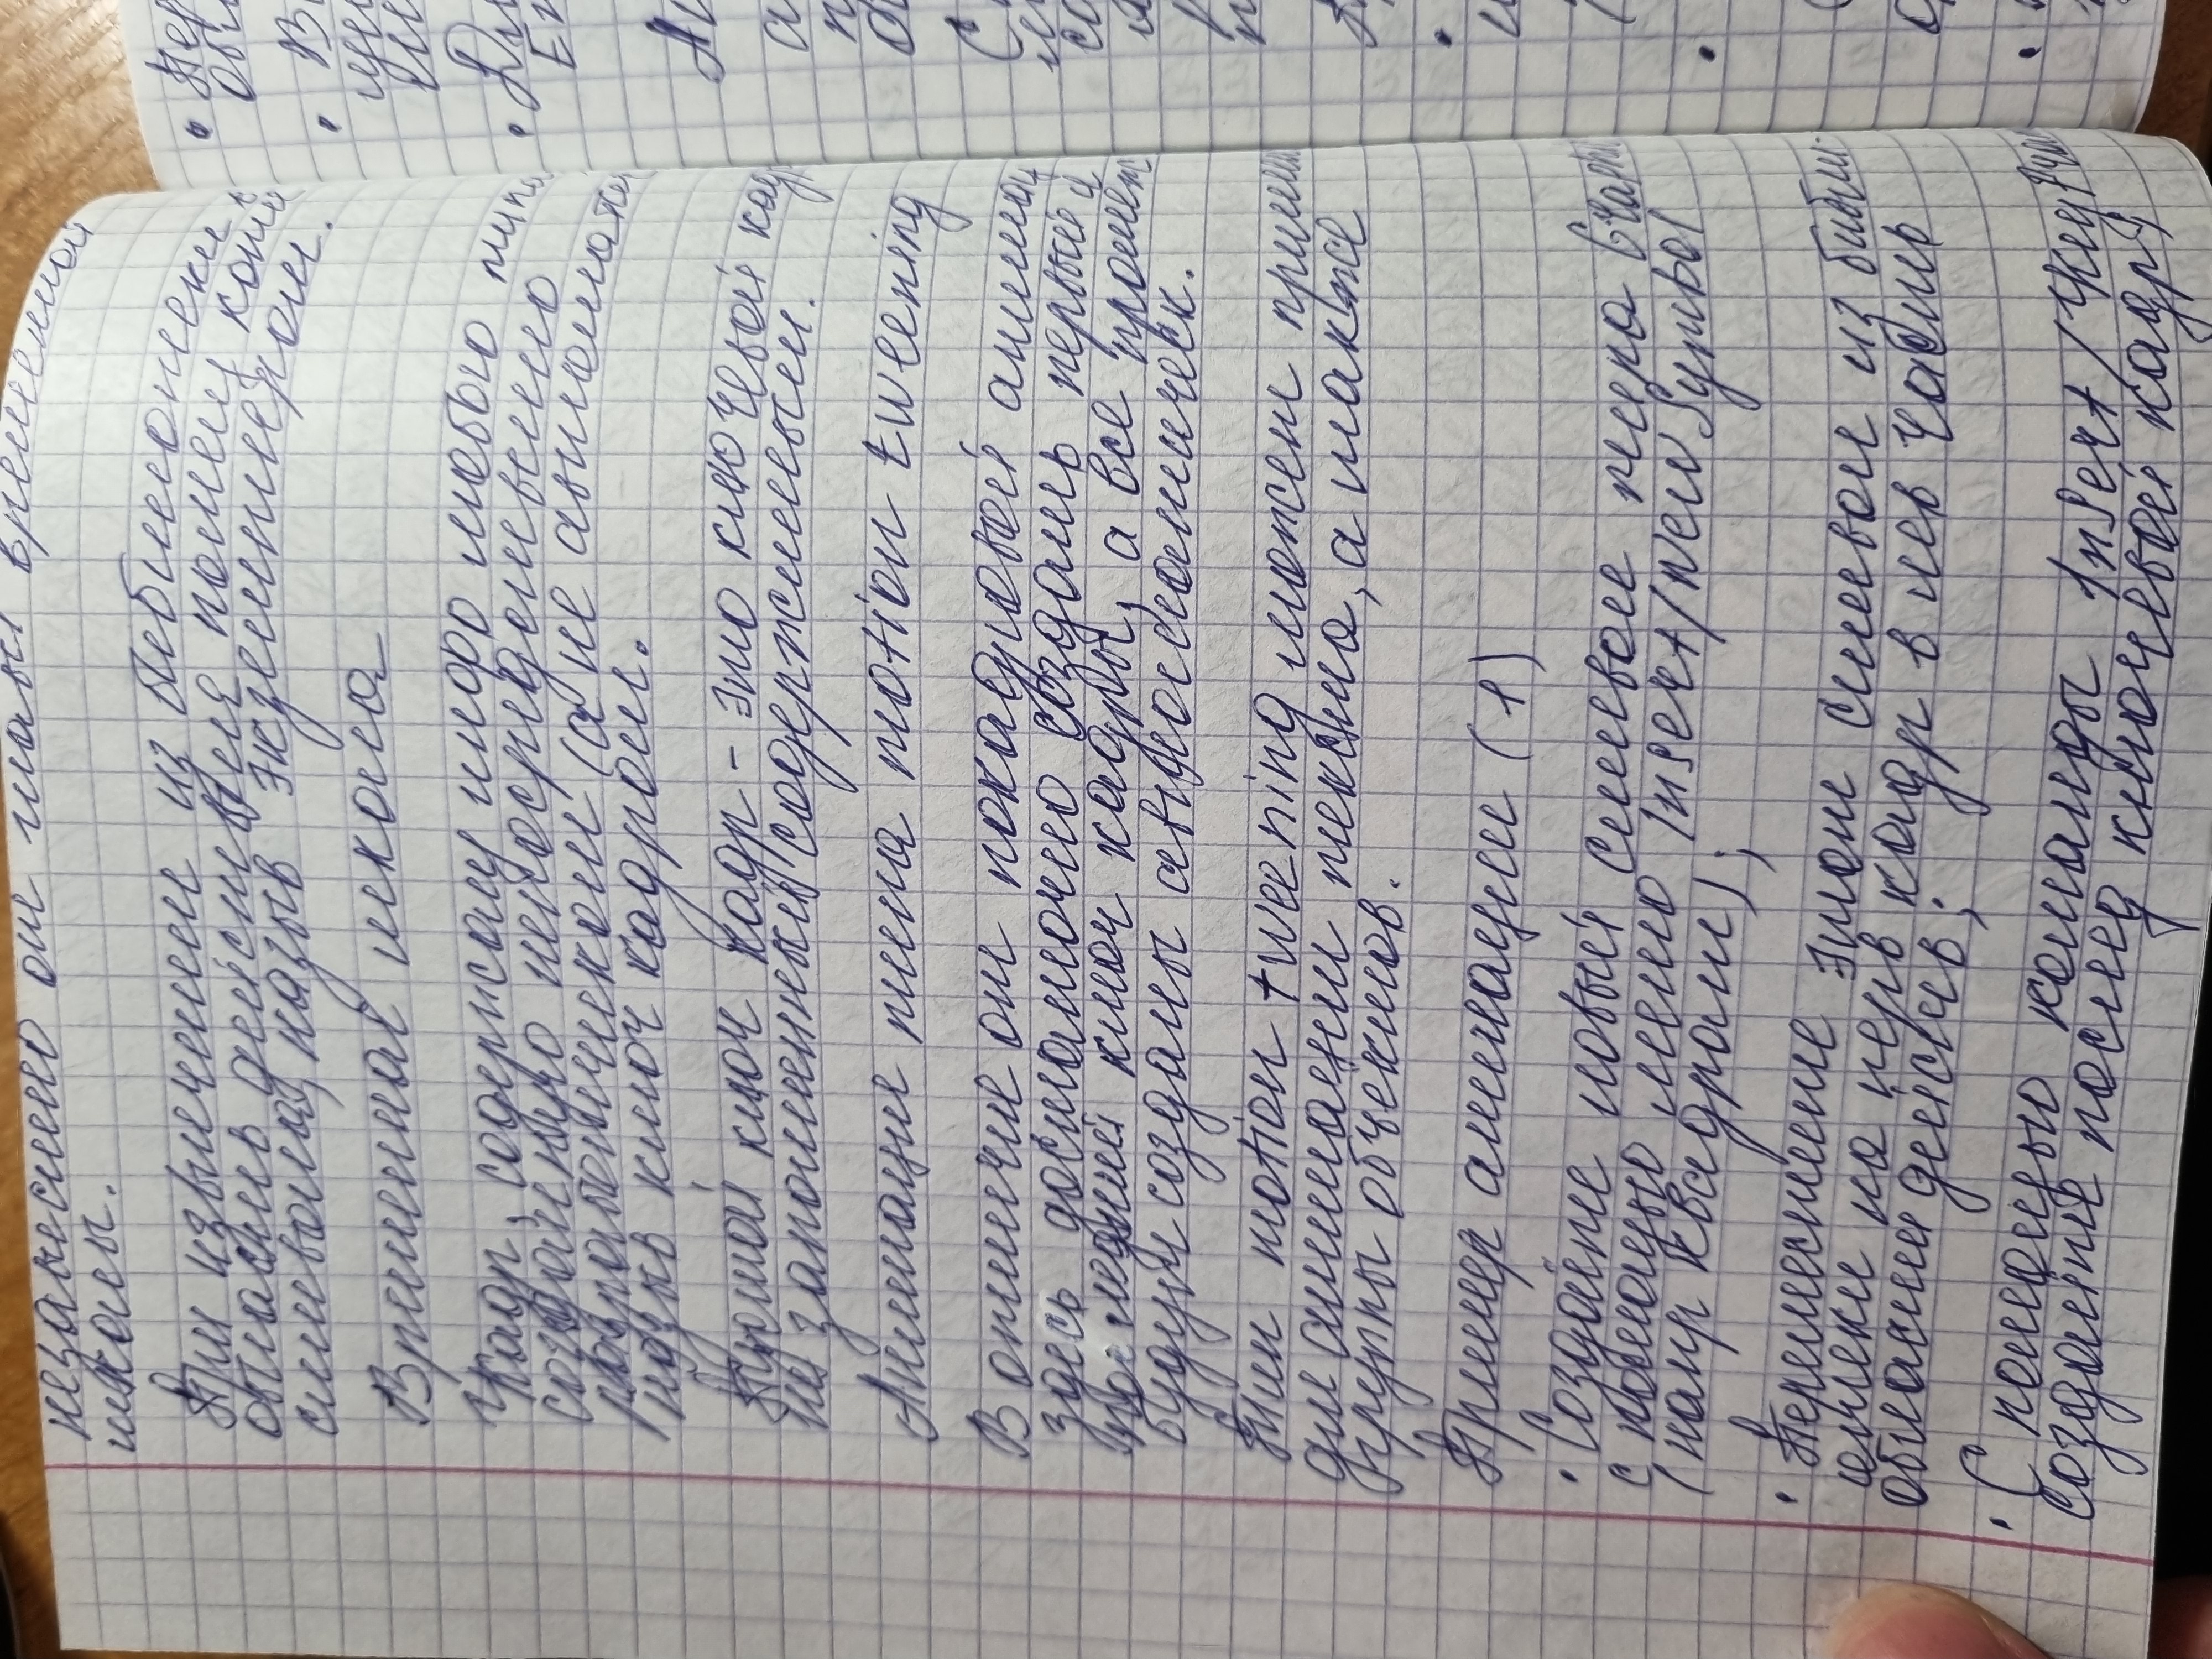 независимо от главн временной
шкалы.
При извлечении из библиотеки в
область действия помещ копия
символа, назыв экземпляром.
Временная шкала
Кадр, содержащ инфо любого типа
созданную непосредственно
разработчиком (а не автоматич
назыв ключ кадром.
Пустой ключ кадр - это ключевой кадр
не заполненный содержимым.
Анимация типа motion tweening
В отличие от покадровой анимац
здесь достаточно создать первый и
последний ключ кадры, а все промеж
будут созданы автоматическ.
Тип motion tweening может примен
для анимации текста, а также
группы объектов.
Пример анимации (1)
• Создайте новый символ типа Graphic
с помощью меню Insert/New Symbol
(напр квадрат);
• Переместите этот символ из библи-
отеки на перв кадр в лев часть
области действ;
• С помощью команды Insert/Keyfram
создайте послед ключевой кадр;
• Пер
обл
• В
• Дл